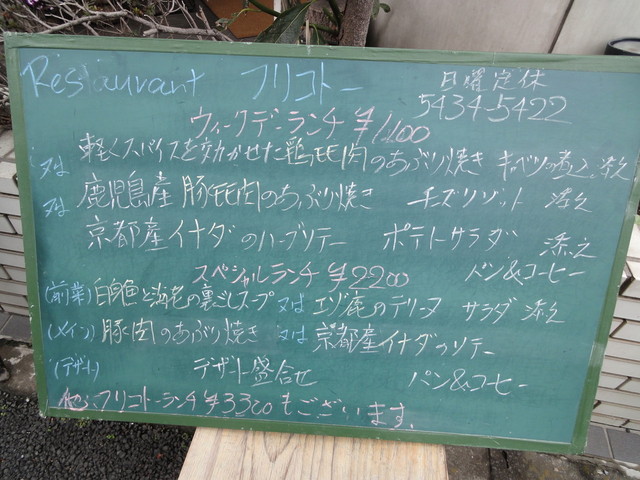 Restaurant フリコトー 日曜定休
5434-5422
ウィークデーランチ ¥1,100
軽くスパイスを効かせた鶏モモ肉のあぶり焼き キャベツの煮込 添え
又は 鹿児島産 豚モモ肉のあぶり焼き チーズリゾット 添え
又は 京都産イナダのハーブソテー ポテトサラダ 添え
パン&コーヒー
スペシャルランチ ¥2200
(前菜) 白身魚と海老の裏ごしスープ 又は エゾ鹿のテリーヌ サラダ 添え
(メイン) 豚肉のあぶり焼き 又は 京都産イナダのソテー
(デザート) デザート盛合せ パン&コーヒー
他、フリコトーランチ ¥3300もございます。